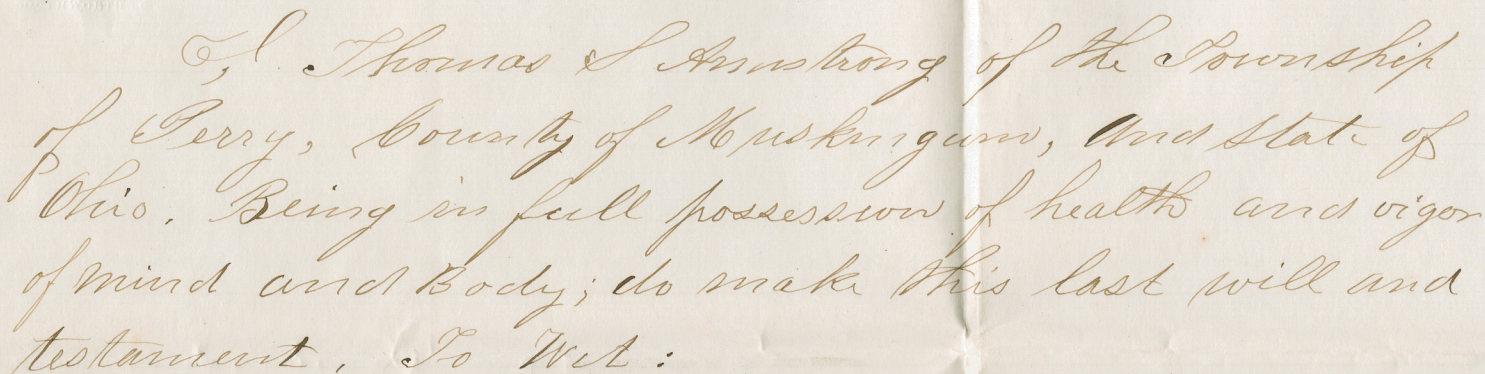 I, Thomas S Armstrong of the Township
of Perry, County of Muskingum, and State of
Ohio. Being in full possession of health and vigor
of mind and Body; do make this last will and
testament. To Wit: